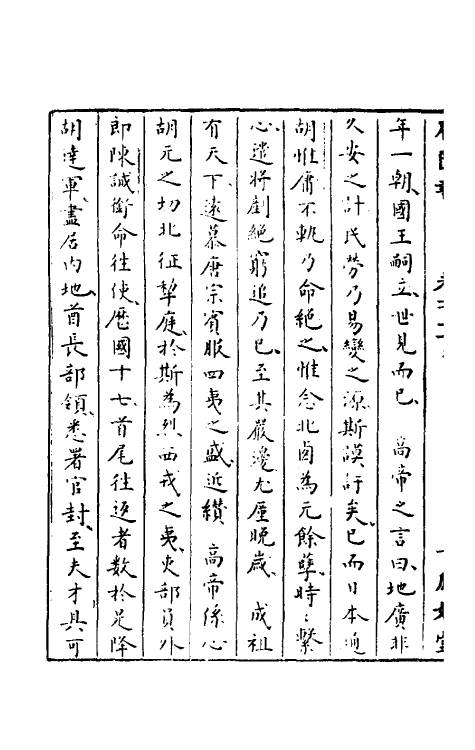 年一朝國王嗣立世見而已 高帝之言曰地廣非
久安之計民勞乃易變之源斯謨訏矣已而日本通
胡惟庸不軌乃命絕之惟念北鹵為元餘孽時〻繫
心遣將剷絕窮追乃已至其嚴邊尤厪晚歲 成祖
有天下遠慕唐宗賓服四夷之盛近纘 高帝係心
胡元之切北征犂庭於斯為烈西戎之夷吏部員外
即陳誠銜命往使歷國十七首尾往返者數於是降
胡達軍盡居內地酋長部領悉署官封至夫才具可